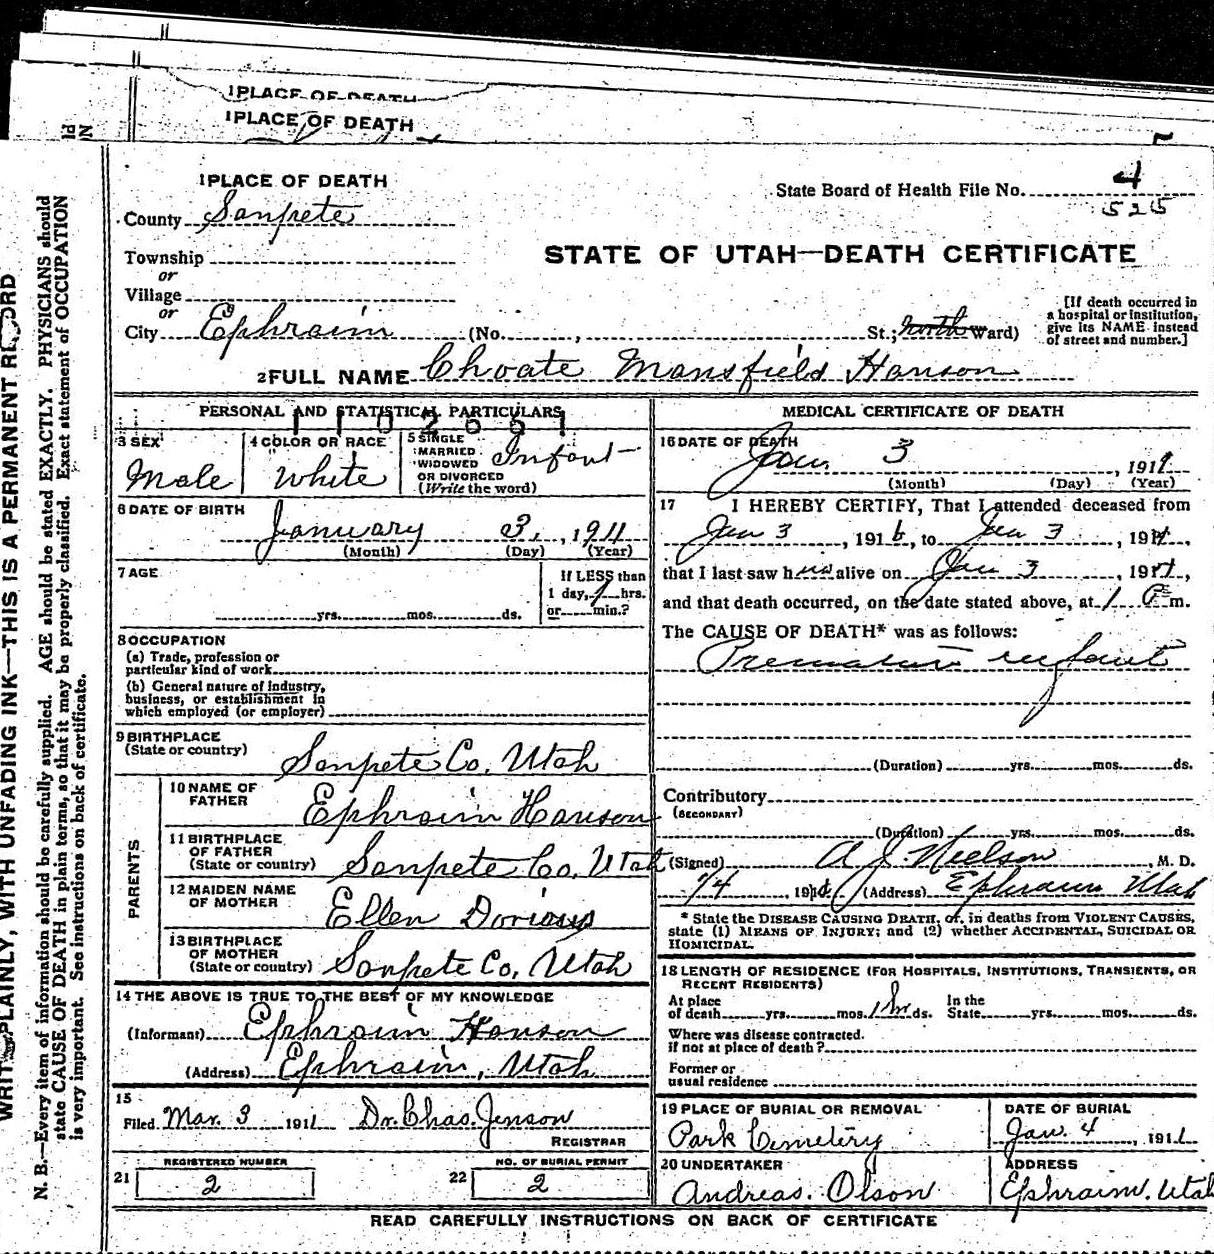 1 PLACE OF DEATH
1 PLACE OF DEATH
1 PLACE OF DEATH
County Sanpete
Township
or
Village
or
City Ephraim (No. , St.; north Ward)
State Board of Health File No. 4
525
STATE OF UTAH—DEATH CERTIFICATE
[If death occurred in
a hospital or institution,
give its NAME instead
of street and number.]
2 FULL NAME Choate Mansfield Hanson
PERSONAL AND STATISTICAL PARTICULARS
1102651
3 SEX
Male
4 COLOR OR RACE
White
5 SINGLE
MARRIED
WIDOWED
OR DIVORCED
(Write the word)
Infant
6 DATE OF BIRTH
January 3, 1911
(Month) (Day) (Year)
7 AGE
yrs. mos. ds.
If LESS than
1 day, 1 hrs.
or min.?
8 OCCUPATION
(a) Trade, profession or
particular kind of work
(b) General nature of industry,
business, or establishment in
which employed (or employer)
9 BIRTHPLACE
(State or country)
Sanpete Co, Utah
PARENTS
10 NAME OF
FATHER
Ephraim Hanson
11 BIRTHPLACE
OF FATHER
(State or country)
Sanpete Co, Utah
12 MAIDEN NAME
OF MOTHER
Ellen Dorious
13 BIRTHPLACE
OF MOTHER
(State or country)
Sanpete Co, Utah
14 THE ABOVE IS TRUE TO THE BEST OF MY KNOWLEDGE
(Informant) Ephraim Hanson
(Address) Ephraim, Utah
15
Filed Mar. 3 1911 Dr. Chas. Jenson
REGISTRAR
21 REGISTERED NUMBER
2
22 NO. OF BURIAL PERMIT
2
MEDICAL CERTIFICATE OF DEATH
16 DATE OF DEATH
Jan 3, 1911
(Month) (Day) (Year)
17 I HEREBY CERTIFY, That I attended deceased from
Jan 3, 191 , to Jan 3, 191 ,
that I last saw him alive on Jan 3, 191 ,
and that death occurred, on the date stated above, at 1 P m.
The CAUSE OF DEATH* was as follows:
Premature infant
(Duration) yrs. mos. ds.
Contributory
(SECONDARY)
(Duration) yrs. mos. ds.
(Signed) A J. Nielson, M. D.
1/4 191 (Address) Ephraim Utah
* State the DISEASE CAUSING DEATH, or, in deaths from VIOLENT CAUSES,
state (1) MEANS OF INJURY; and (2) whether ACCIDENTAL, SUICIDAL OR
HOMICIDAL.
18 LENGTH OF RESIDENCE (FOR HOSPITALS, INSTITUTIONS, TRANSIENTS, OR
RECENT RESIDENTS)
At place
of death yrs. mos. 1 hr ds.
In the
State yrs. mos. ds.
Where was disease contracted.
if not at place of death?
Former or
usual residence
19 PLACE OF BURIAL OR REMOVAL
Park Cemetery
DATE OF BURIAL
Jan. 4, 1911
20 UNDERTAKER
Andreas. Olson
ADDRESS
Ephraim. Utah
READ CAREFULLY INSTRUCTIONS ON BACK OF CERTIFICATE
WRITE PLAINLY, WITH UNFADING INK—THIS IS A PERMANENT RECORD
N. B.—Every item of information should be carefully supplied. AGE should be stated EXACTLY. PHYSICIANS should
state CAUSE OF DEATH in plain terms, so that it may be properly classified. Exact statement of OCCUPATION
is very important. See instructions on back of certificate.